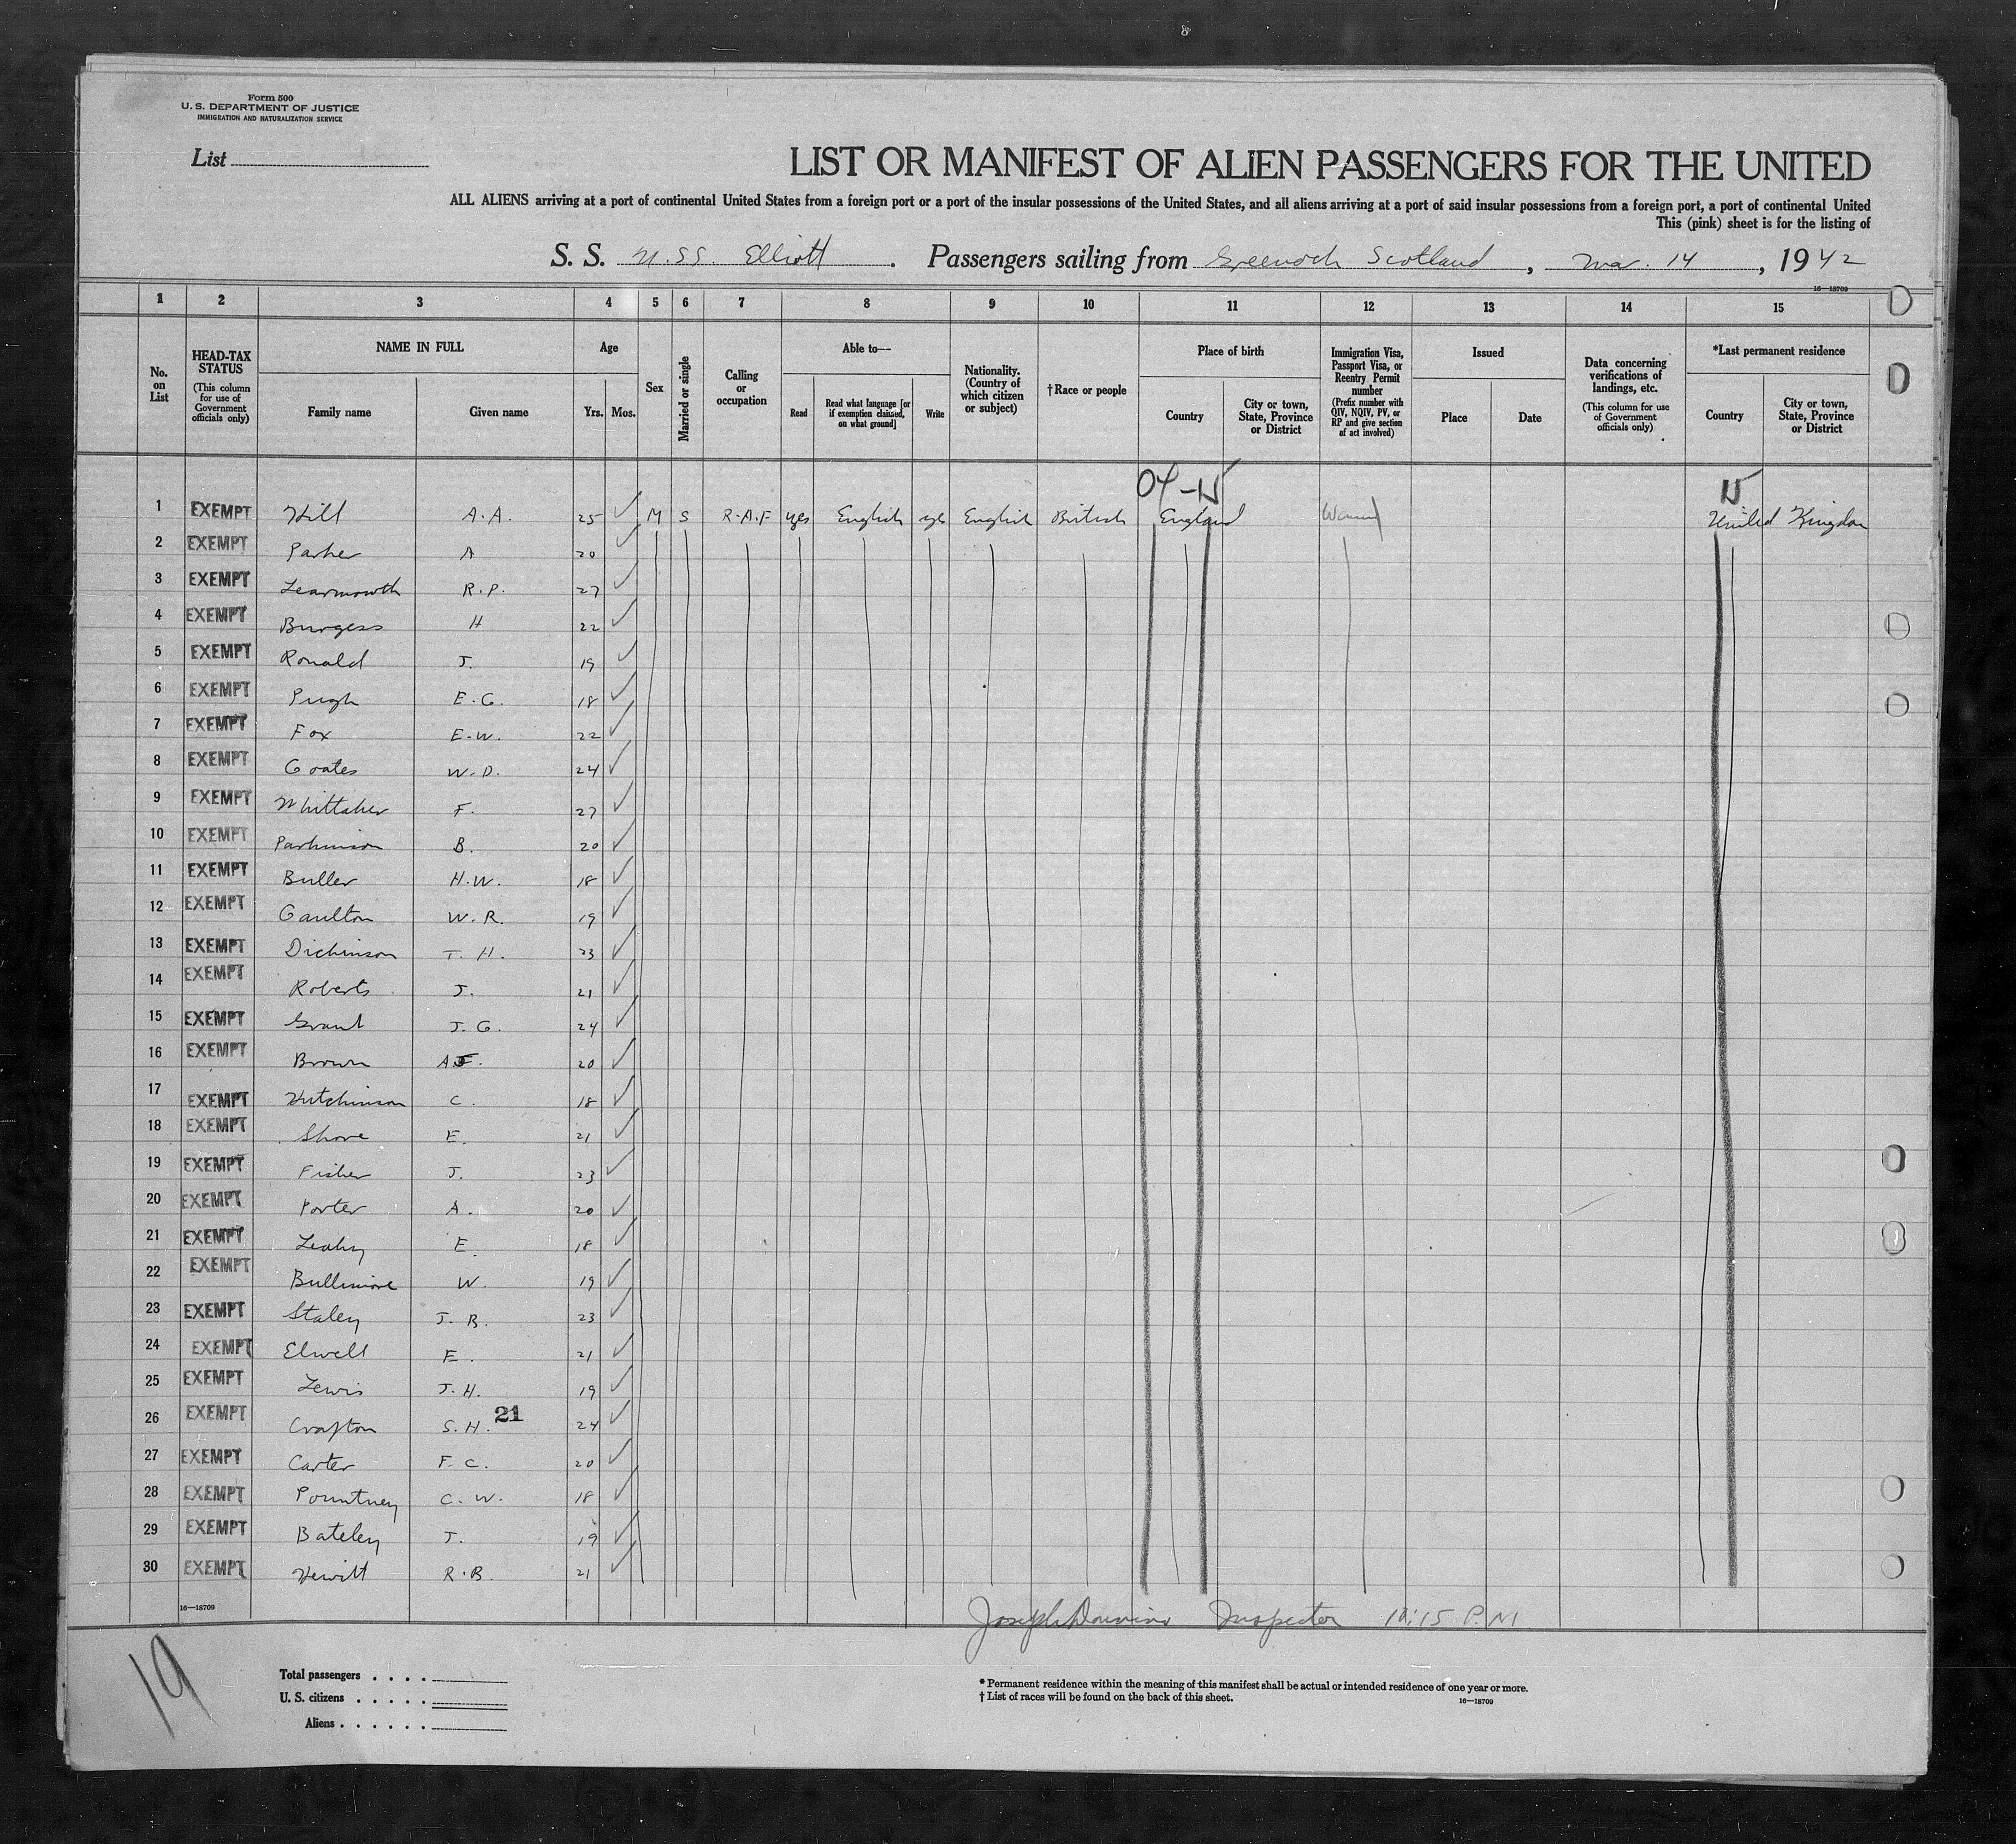 Form 500
U. S. DEPARTMENT OF JUSTICE
IMMIGRATION AND NATURALIZATION SERVICE
List
LIST OR MANIFEST OF ALIEN PASSENGERS FOR THE UNITED
ALL ALIENS arriving at a port of continental United States from a foreign port or a port of the insular possessions of the United States, and all aliens arriving at a port of said insular possessions from a foreign port, a port of continental United
This (pink) sheet is for the listing of
S. S. U.SS. Elliott . Passengers sailing from Greenock Scotland , Mar. 14 , 1942
16—18709
1 2 3 4 5 6 7 8 9 10 11 12 13 14 15
No. on List
HEAD-TAX STATUS
(This column for use of Government officials only)
NAME IN FULL
Family name
Given name
Age
Yrs. Mos.
Sex
Married or single
Calling or occupation
Able to—
Read
Read what language [or if exemption claimed, on what ground]
Write
Nationality. (Country of which citizen or subject)
†Race or people
Place of birth
Country
City or town, State, Province or District
Immigration Visa, Passport Visa, or Reentry Permit number
(Prefix number with QIV, NQIV, PV, or RP and give section of act involved)
Issued
Place
Date
Data concerning verifications of landings, etc.
(This column for use of Government officials only)
*Last permanent residence
Country
City or town, State, Province or District
1 EXEMPT Hill A.A. 25 M S R.A.F yes English yes English British England United Kingdom
2 EXEMPT Parker A 20
3 EXEMPT Learmowth R.P. 27
4 EXEMPT Burgess H 22
5 EXEMPT Ronald J. 19
6 EXEMPT Pugh E.G. 18
7 EXEMPT Fox E.W. 22
8 EXEMPT Coates W.D. 24
9 EXEMPT Whittaker F. 27
10 EXEMPT Parkinson B. 20
11 EXEMPT Buller H.W. 18
12 EXEMPT Gaulton W.R. 19
13 EXEMPT Dickinson T.H. 23
14 EXEMPT Roberts J. 21
15 EXEMPT Grant J.G. 24
16 EXEMPT Brown 20
17 EXEMPT Hutchinson C. 18
18 EXEMPT Shore E. 21
19 EXEMPT Fisher J. 23
20 EXEMPT Porter A. 20
21 EXEMPT Leahy E. 18
22 EXEMPT Bullimore W. 19
23 EXEMPT Staley J.B. 23
24 EXEMPT Elwell E. 21
25 EXEMPT Lewis J.H. 19
26 EXEMPT Crafton S.H. 21 24
27 EXEMPT Carter F.C. 20
28 EXEMPT Pountney C.W. 18
29 EXEMPT Bateley J. 19
30 EXEMPT Hewitt R.B. 21
16—18709
Joseph Inspector 10:15 P.M
19
Total passengers
U. S. citizens
Aliens
* Permanent residence within the meaning of this manifest shall be actual or intended residence of one year or more.
† List of races will be found on the back of this sheet.
16—18709